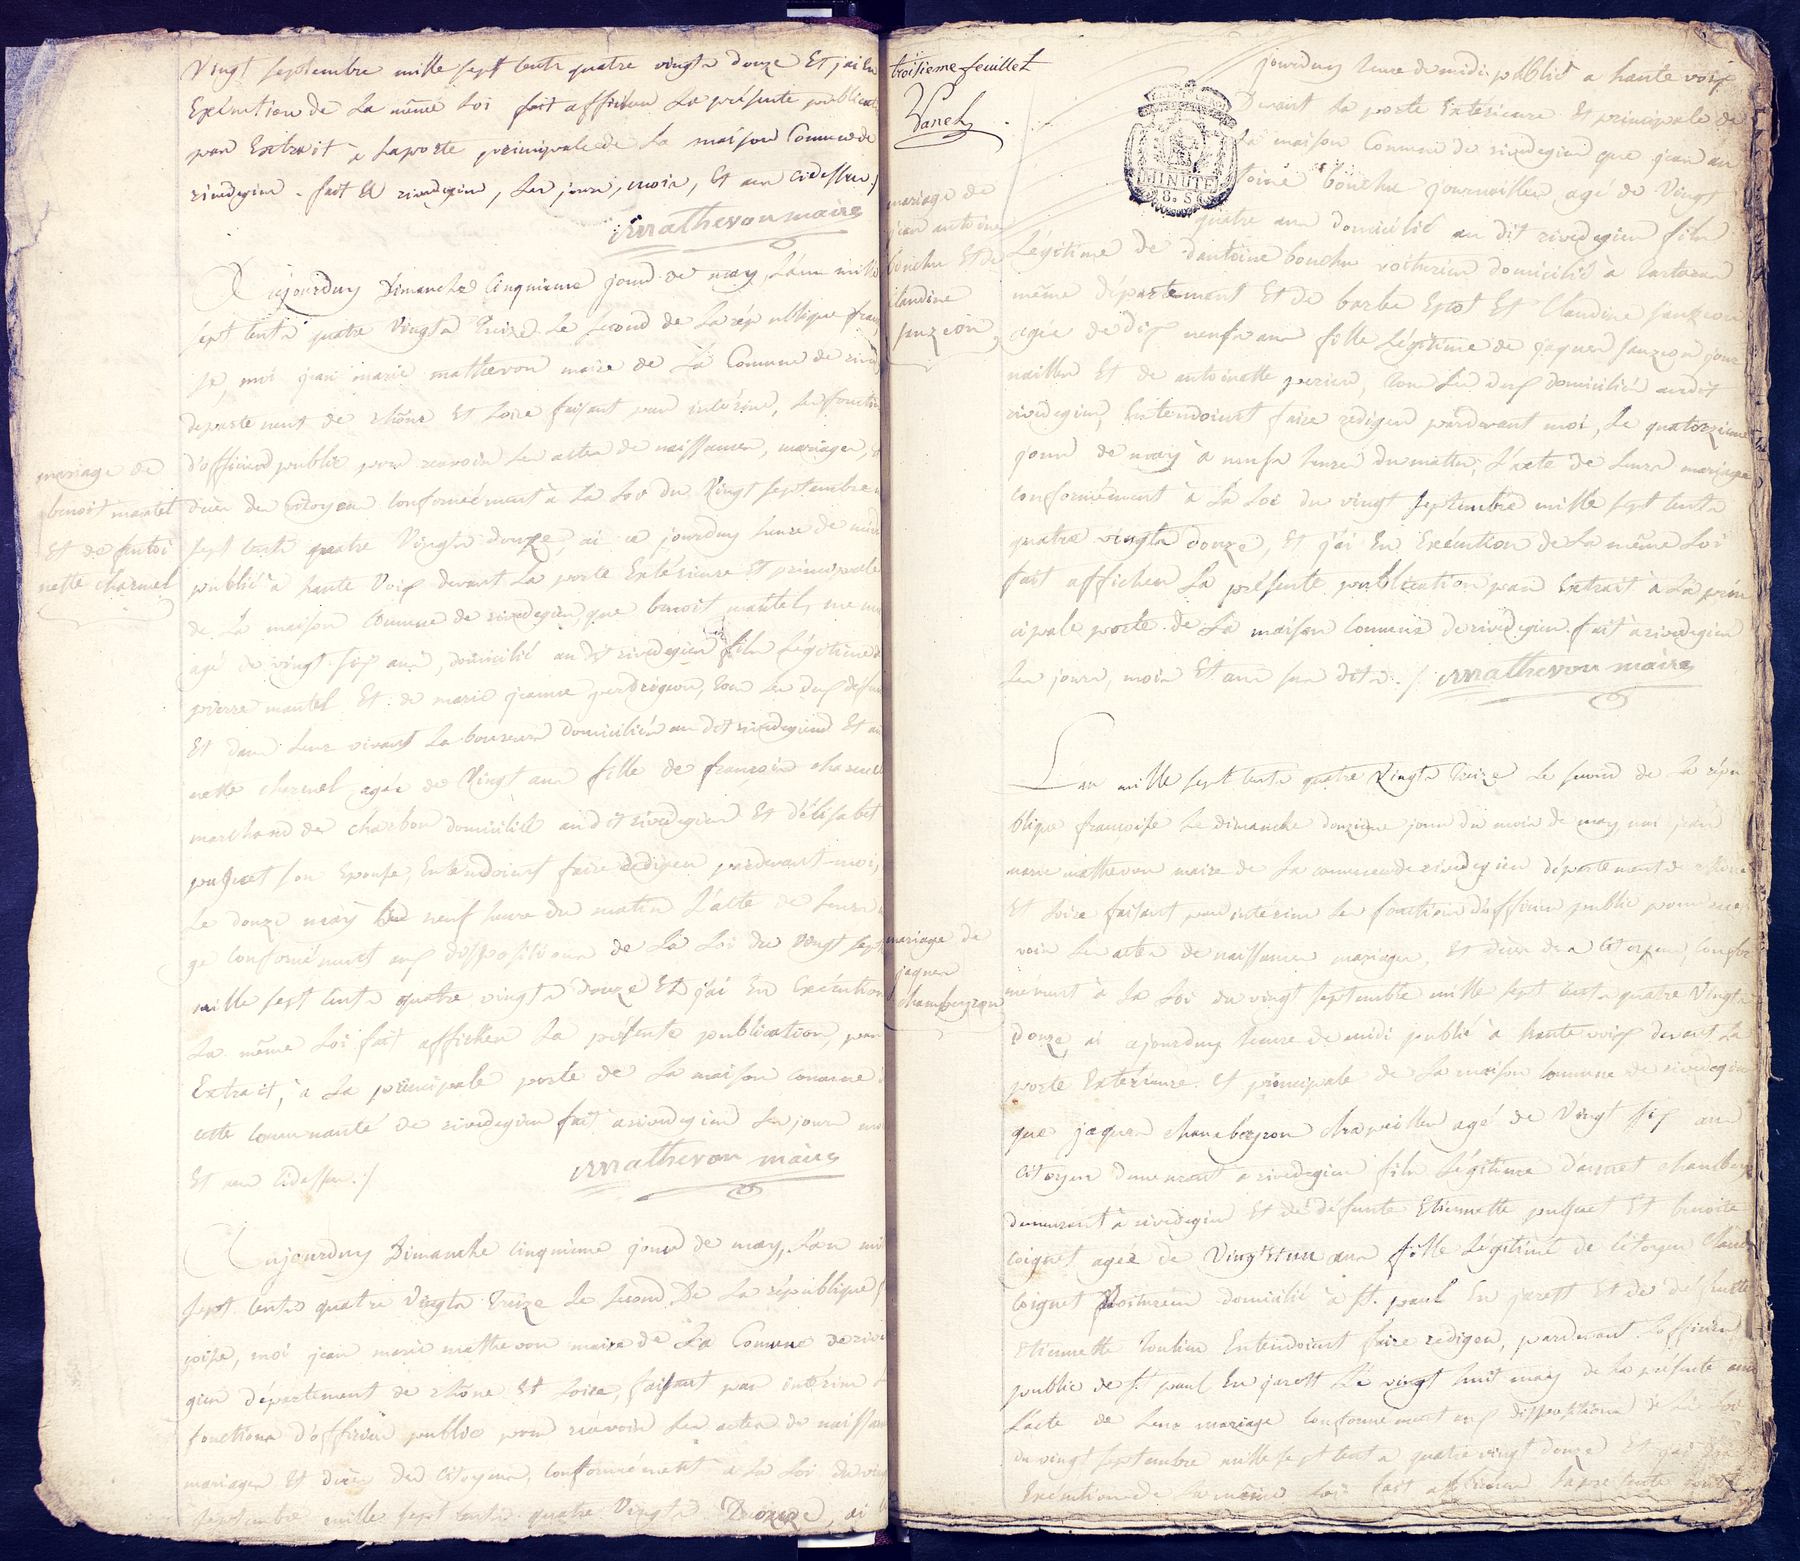 Vingt septembre mille sept cents quatre vingts douze Et j'ai En
Exécution de La même Loi fait afficher La présente publicat
par Extrait à La porte principale de La maison Commune de
rivedegier. fait à rivedegier, Les jours, mois, Et an cidessus
mathevon maire
Aujourduy Dimanche Cinquieme jour de may, L'an mille
sept cents quatre Vingts treize Le second de La république fran
se, moi jean marie mathevon maire de La Commune de rive
departement de rhône Et Loire faisant par intérim, Les fonction
d'officier public pour recevoir Les actes de naissances, mariages,
décès des Citoyens Conformément à La Loi du Vingt septembre
sept cents quatre Vingts douze, ai ce jourduy heure de midi
publié à haute Voix devant La porte Extérieure Et principale
de La maison Commune de rivedegier, que benoit mantel,
agé de vingt six ans, domicilié au dit rivedegier fils Légitime
pierre mantel Et de marie jeanne perdrigeon, tous Les deux
Et dans Leur vivant Laboureurs domiciliés au dit rivedegier Et
nette charmel agée de Vingt ans fille de françois charmel
marchand de charbon domicilié au dit rivedegier Et d'élisabet
son Epouse, Entendoient faire rédiger pardevant moi,
Le douze may neuf heure du matin L'acte de Leur
ge Conformément aux dispositions de La Loi du Vingt sept
mille sept cents quatre vingts douze Et j'ai En Exécution
La même Loi fait afficher La présente publication, par
Extrait, à La principale porte de La maison Commune
cette Communauté de rivedegier fait à rivedegier Les jours moi
Et an Cidessus
mathevon maire
Aujourduy Dimanche Cinquieme jour de may, L'an mi
sept cents quatre Vingts treize Le second De La république
çoise, moi jean marie mathevon maire de La Comune de rive
gier département de rhône Et Loire, faisant par intérim
fonctions d'officier public pour recevoir Les actes de naissan
mariages Et décès des Citoyens, Conformément à La Loi du vin
septembre mille sept cents quatre Vingts Douze, ai
mariage de
benoit mantel
Et de antoi
nette charmel
troisieme feuillet
mariage de
jean antoine
bonchu Et de
claudine
jourduy heure de midi publié à haute voix
Devant La porte Extérieure Et principale de
La maison Commune de rivedegier que jean an
toine bonchu journaillier, agé de Vingt
quatre ans domicilié au dit rivedegier fils
Légitime de d'antoine bonchu voiturier domicilié à
même département Et de Et Claudine
agée de dix neufs ans fille Légitime de jaques jour
naillier Et de antoinette perier, tous Les deux domiciliés audit
rivedegier, Entendoient faire rédiger pardevant moi, Le quatorzieme
jour de may à neufs heures du matin, L'acte de Leurs mariage
Conformément à La Loi du vingt septembre mille sept cents
quatre vingts douze, Et j'ai En Exécution de La même Loi
fait afficher La présente publication par Extrait à La prin
cipale porte de La maison Commune de rivedegier. fait à rivedegier
Les jours, mois Et ans sus dits. mathevon maire
MINUTE
8. S
mariage de
jaques
chambeyron
L'an mille sept cents quatre Vingts treize Le second de La répu
blique françoise Le dimanche douzieme jour du mois de may, moi jean
marie mathevon maire de La commune de rivedegier département de rhône
Et Loire faisant par intérim Les fonctions d'officier public pour rece
voir Les actes de naissances mariages, Et décès des Citoyens, Confor
mément à La Loi du vingt septembre mille sept cents quatre Vingts
douze, ai ajourduy heure de midi publié à haute voix devant La
porte Extérieure Et principale de La maison Commune de rivedegier
que jaques chambeyron agé de Vingt six ans
Citoyen demeurant à rivedegier fils Légitime
demeurant à rivedegier Et de défunte Etiennette Et benoite
Coignet agée de Vingt un ans fille Légitime de Citoyen Claude
Coignet Voiturier domicilié à St. paul En jarest Et de défunte
Etiennette Entendoient faire rédiger, pardevant L'officier
public de St. paul En jarest Le vingt huit may de La présente année
L'acte de Leur mariage Conformément aux dispositions de La Loi
du vingt septembre mille sept cents quatre vingt douze Et j'ai En
Exécution de La même Loi fait afficher La présente